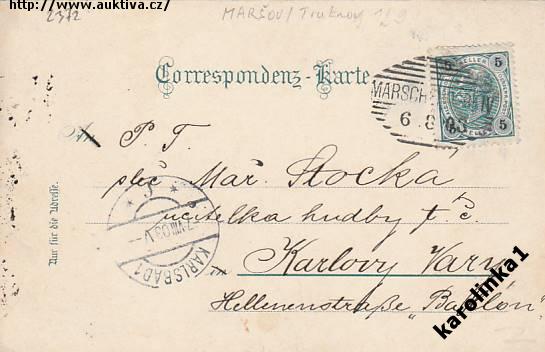 http://www.auktiva.cz/
2372
MARŠOV / Trutnov
Correspondenz-Karte.
5 5
5
MARSCH
6 8 03
An
P. T.
sleč Mař. Stocka
učitelka hudby t. č.
Karlovy Vary
Hellenenstraße „
KARLSBAD 1
7 VIII 03 V
Nur für die Adresse.
karolinka1